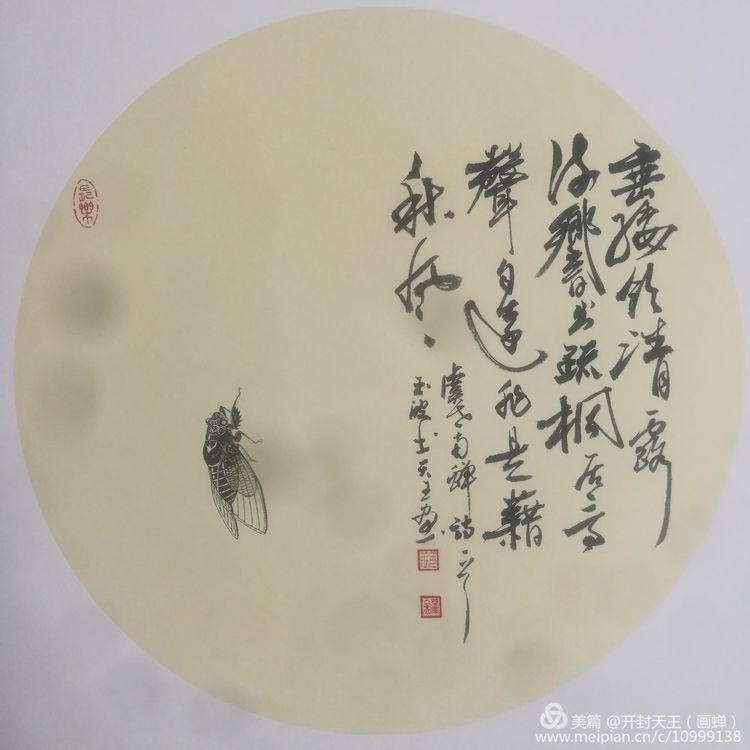 垂緌飲清露
流響出疏桐居高
聲自遠非是藉
秋風
虞世南蟬詩一首
玉波书天王画
長樂
美篇 @开封天王（画蝉）
www.meipian.cn/c/10999138